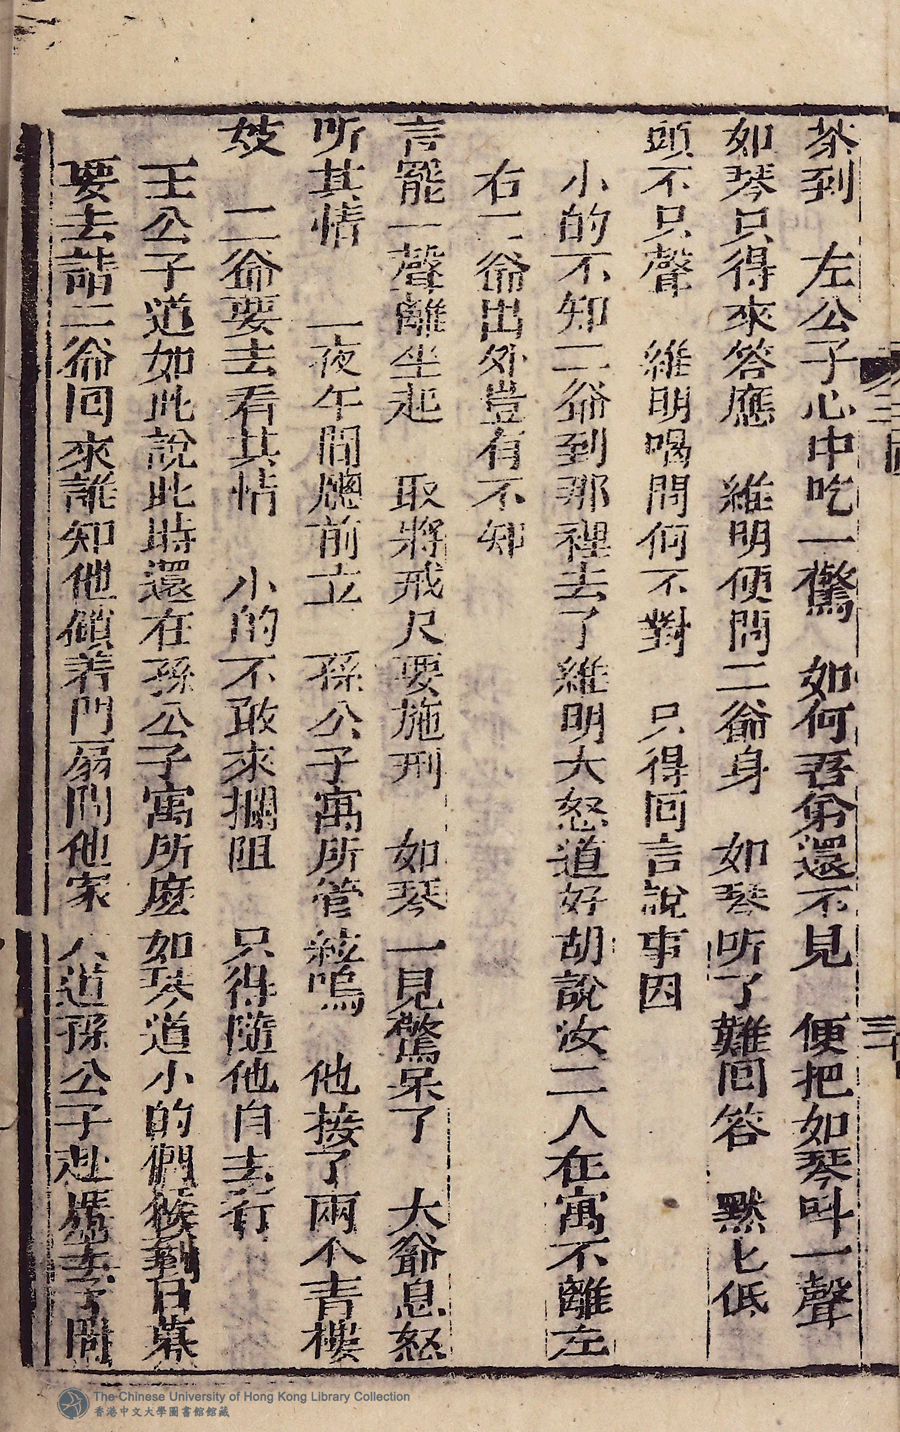 茶到　左公子心中吃一驚　如何吾弟還不見　便把如琴叫一聲
如琴只得來答應　維明便問二爺身　如琴听了難囘答　默匕低
頭不只聲　維明喝問何不對　只得囘言說事因
小的不知二爺到那裡去了維明大怒道好胡說汝二人在寓不離左
右二爺出外豈有不知
言罷一聲離坐起　取將戒尺要施刑　如琴一見驚呆了　大爺息怒
听其情　一夜午間廳前立　孫公子寓所管絃鳴　他接了兩个青樓
妓　二爺要去看其情　小的不敢來攔阻　只得隨他自去行
王公子道如此說此時還在孫公子寓所麽如琴道小的們候到日暮
要去請二爺囘來誰知他鎖着門扇問他家人道孫公子赴席去了問
三十
The Chinese University of Hong Kong Library Collection
香港中文大學圖書館館藏